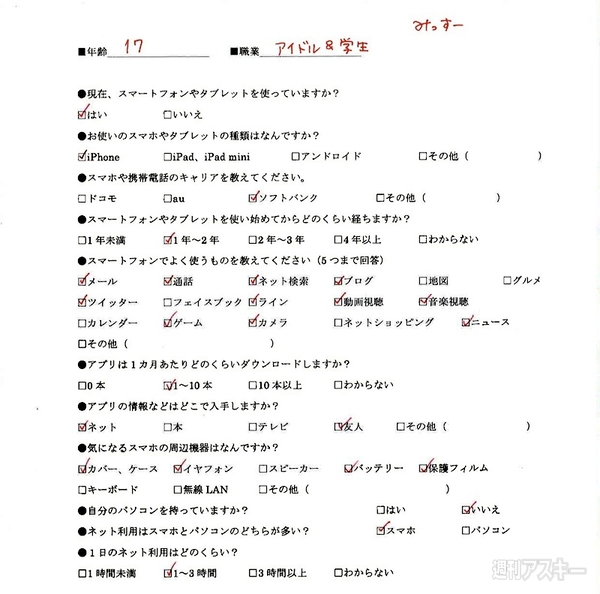 みっすー
■年齢 17 ■職業 アイドル&学生
●現在、スマートフォンやタブレットを使っていますか?
☑はい □いいえ
●お使いのスマホやタブレットの種類はなんですか?
☑iPhone □iPad、iPad mini □アンドロイド □その他( )
●スマホや携帯電話のキャリアを教えてください。
□ドコモ □au ☑ソフトバンク □その他( )
●スマートフォンやタブレットを使い始めてからどのくらい経ちますか?
□1年未満 ☑1年~2年 □2年~3年 □4年以上 □わからない
●スマートフォンでよく使うものを教えてください(5つまで回答)
☑メール ☑通話 ☑ネット検索 ☑ブログ □地図 □グルメ
☑ツイッター □フェイスブック ☑ライン ☑動画視聴 ☑音楽視聴
□カレンダー ☑ゲーム ☑カメラ □ネットショッピング ☑ニュース
□その他( )
●アプリは1カ月あたりどのくらいダウンロードしますか?
□0本 ☑1~10本 □10本以上 □わからない
●アプリの情報などはどこで入手しますか?
☑ネット □本 □テレビ ☑友人 □その他( )
●気になるスマホの周辺機器はなんですか?
☑カバー、ケース ☑イヤフォン □スピーカー ☑バッテリー ☑保護フィルム
□キーボード □無線LAN □その他( )
●自分のパソコンを持っていますか? □はい ☑いいえ
●ネット利用はスマホとパソコンのどちらが多い? ☑スマホ □パソコン
●1日のネット利用はどのくらい?
□1時間未満 ☑1~3時間 □3時間以上 □わからない
週刊アスキー